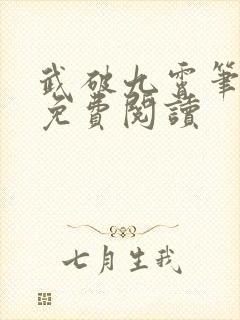 武破九霄筆
免費閱讀
七月生我